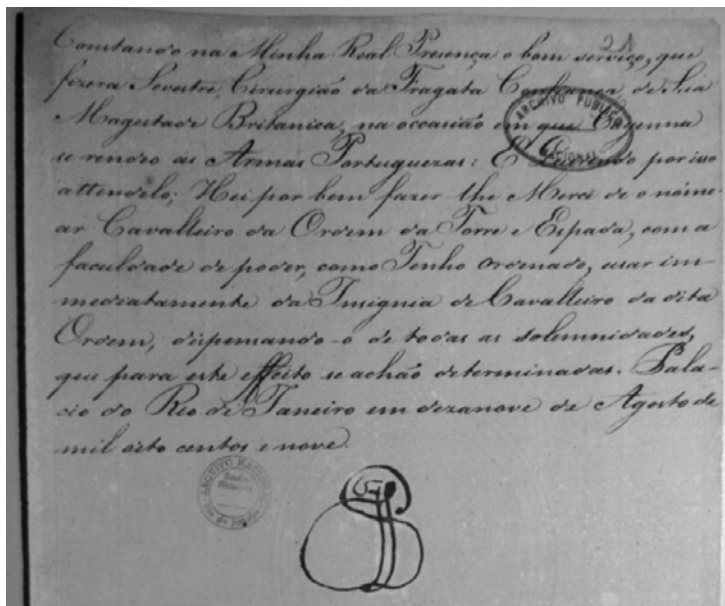 Constando na Minha Real Presença o bom serviço, que
21
fizera Sevestre, Cirurgião da Fragata Confiança, de Sua
Magestade Britanica, na occasião em que Cayenna
se rendeo ás Armas Portuguezas: E Querendo por isso
attendelo; Hei por bem fazer-lhe Mercê de o nóme-
ar Cavalleiro da Ordem da Torre e Espada, com a
faculdade de poder, como Tenho ordenado, usar im-
mediatamente da Insignia de Cavalleiro da dita
Ordem, dispensando-o de todas as solemnidades,
que para este effeito se achão determinadas. Pala-
cio do Rio de Janeiro em dezanove de Agosto de
mil oito centos e nove.
ARCHIVO PUBLICO
NACIONAL
ARQUIVO NACIONAL
Rio de Janeiro